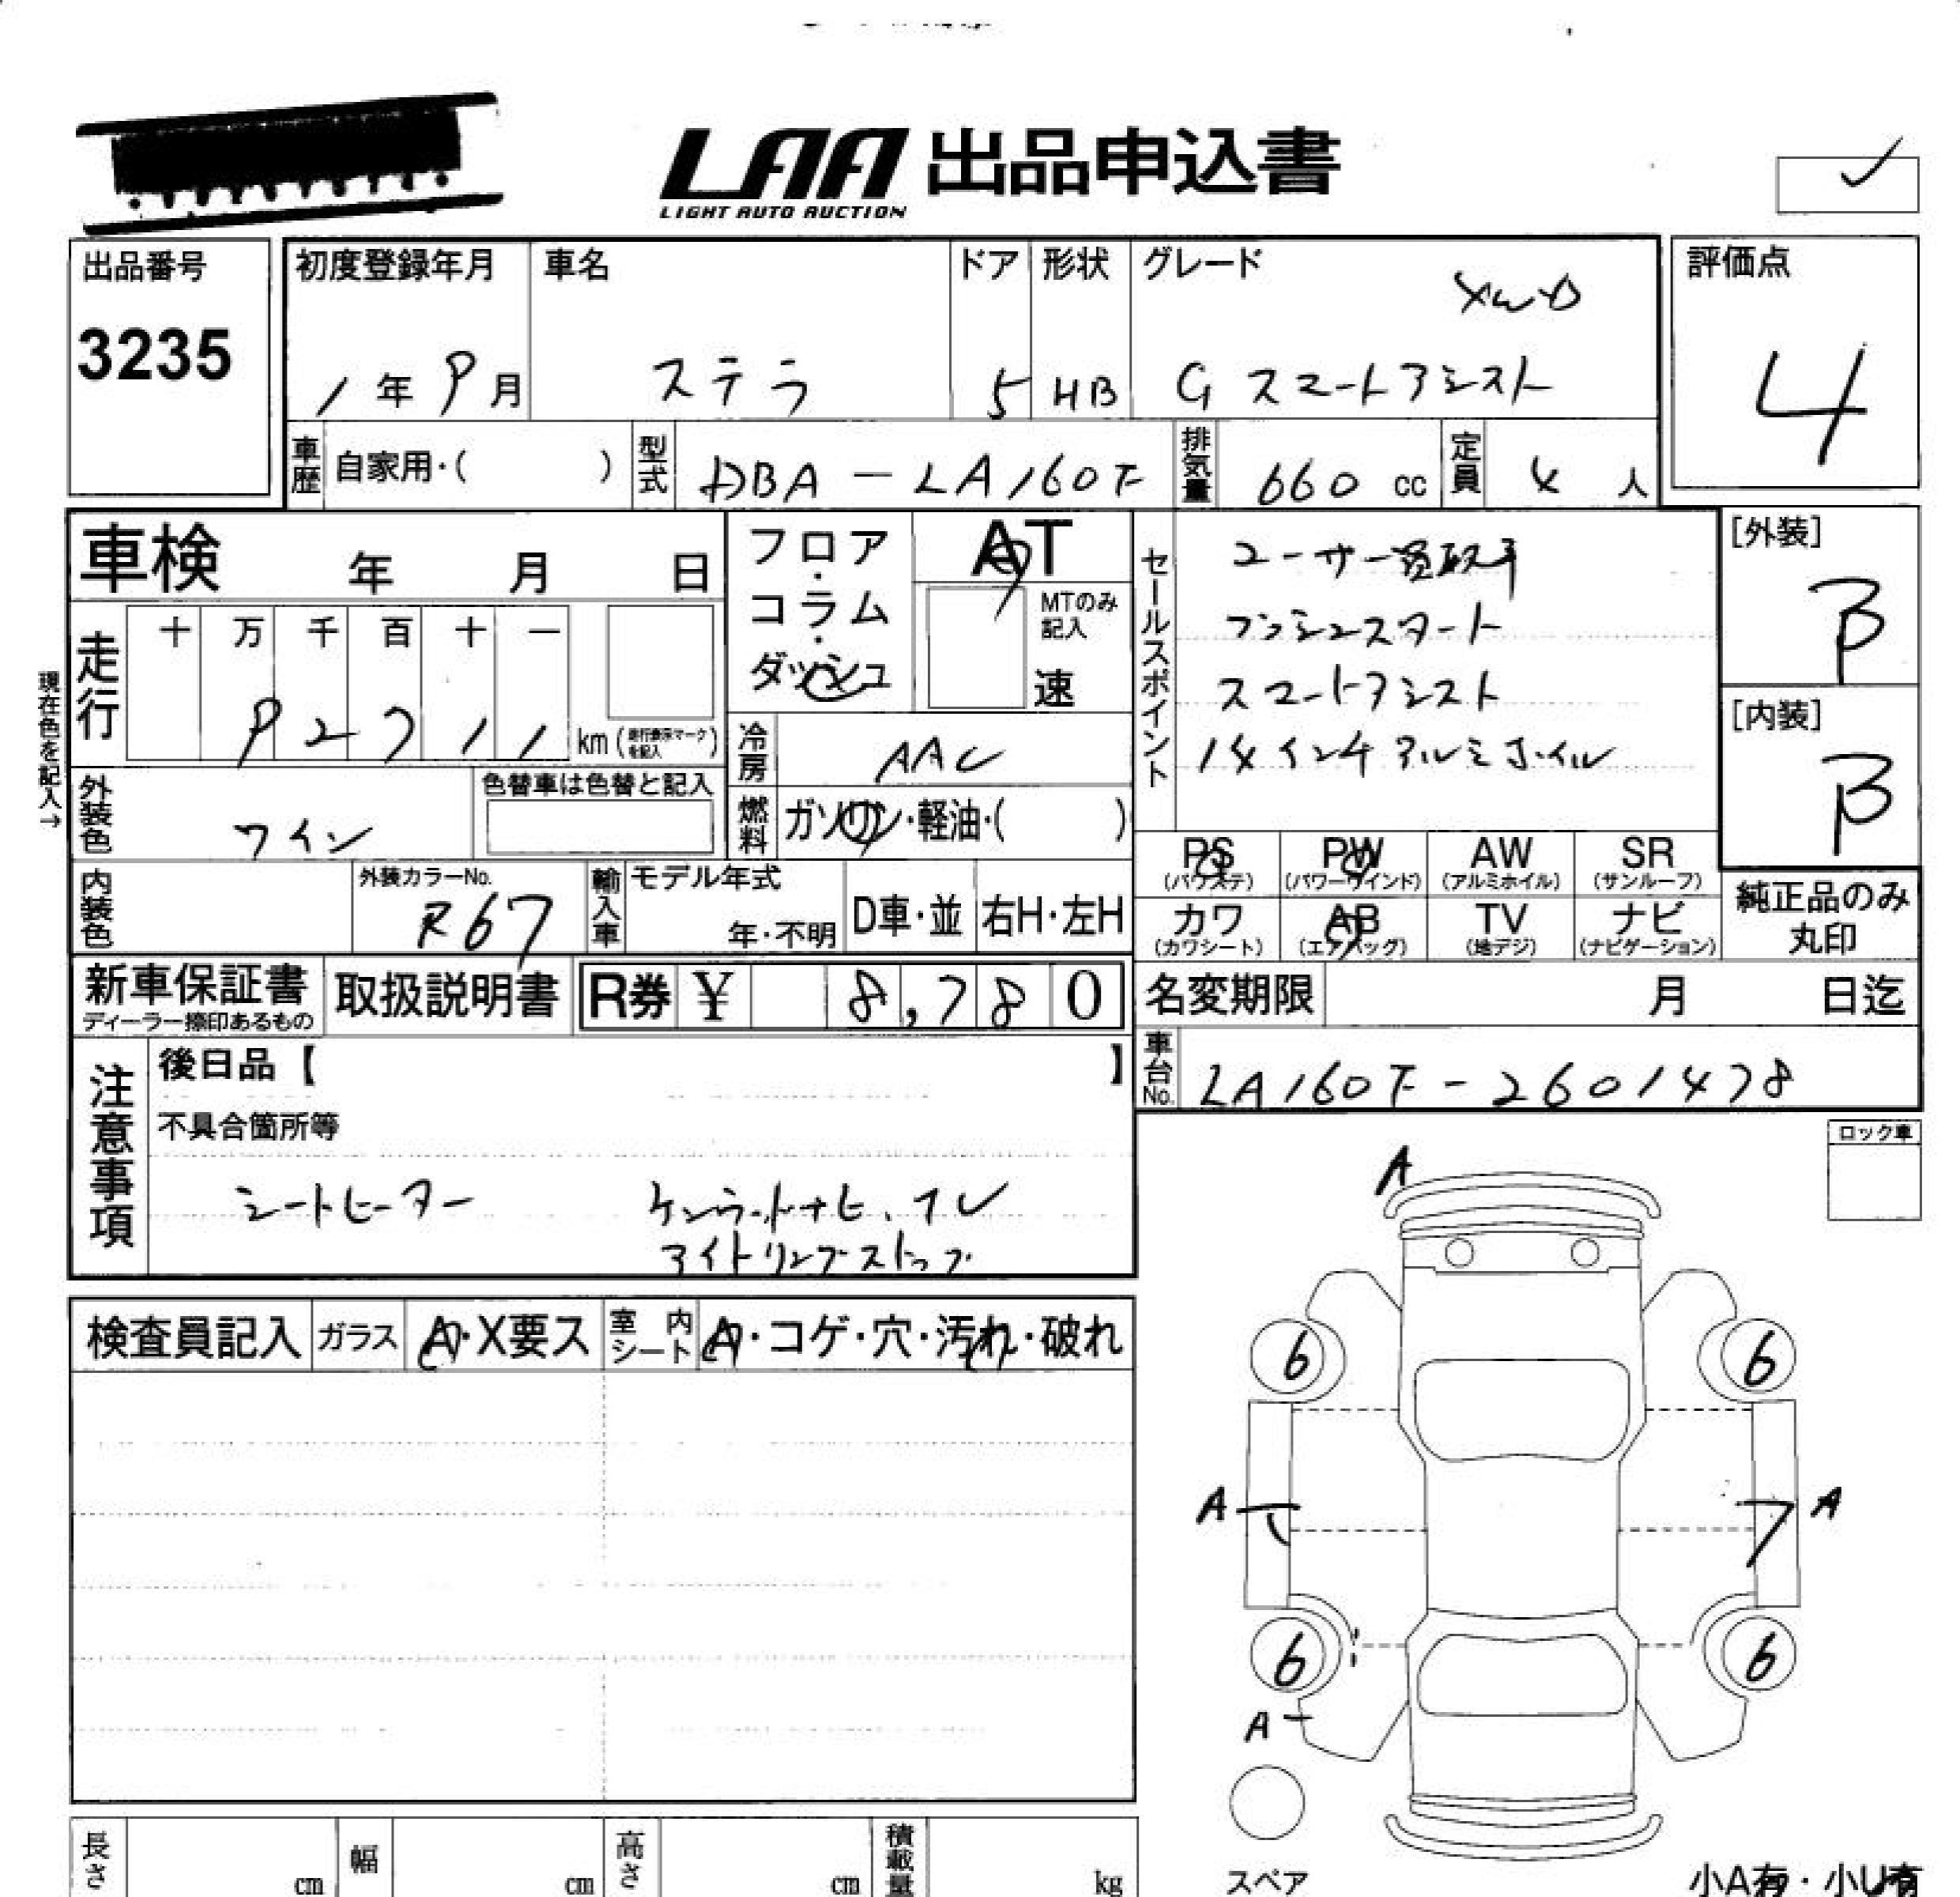 LAA 出品申込書
LIGHT AUTO AUCTION
出品番号
3235
初度登録年月
1年9月
車名
ステラ
ドア
5
形状
HB
グレード
4WD
G スマートアシスト
評価点
4
車歴 自家用・( )
型式 DBA-LA160F
排気量 660 cc
定員 4 人
車検 年 月 日
フロア・コラム・ダッシュ
AT
MTのみ記入
速
走行
十 万 千 百 十 一
9 2 7 1 1 km (走行表示マークを記入)
現在色を記入→
冷房 AAC
燃料 ガソリン・軽油・( )
外装色 ワイン
色替車は色替と記入
内装色
外装カラーNo.
R67
輸入車
モデル年式
年・不明
D車・並
右H・左H
セールスポイント
ユーザー買取車
プッシュスタート
スマートアシスト
14インチアルミホイル
[外装]
B
[内装]
B
PS (パワステ)
PW (パワーウインド)
AW (アルミホイル)
SR (サンルーフ)
カワ (カワシート)
AB (エアバッグ)
TV (地デジ)
ナビ (ナビゲーション)
純正品のみ丸印
新車保証書
ディーラー捺印あるもの
取扱説明書
R券 ¥ 8,780
名変期限 月 日迄
車台No. LA160F-2601478
注意事項
後日品【 】
不具合箇所等
シートヒーター
ケンウッドナビ.TV
アイドリングストップ
ロック車
検査員記入
ガラス A・X要ス
室内シート A・コゲ・穴・汚れ・破れ
A
6 6
A A
6 6
A
スペア
小A有・小U有
長さ cm
幅 cm
高さ cm
積載量 kg